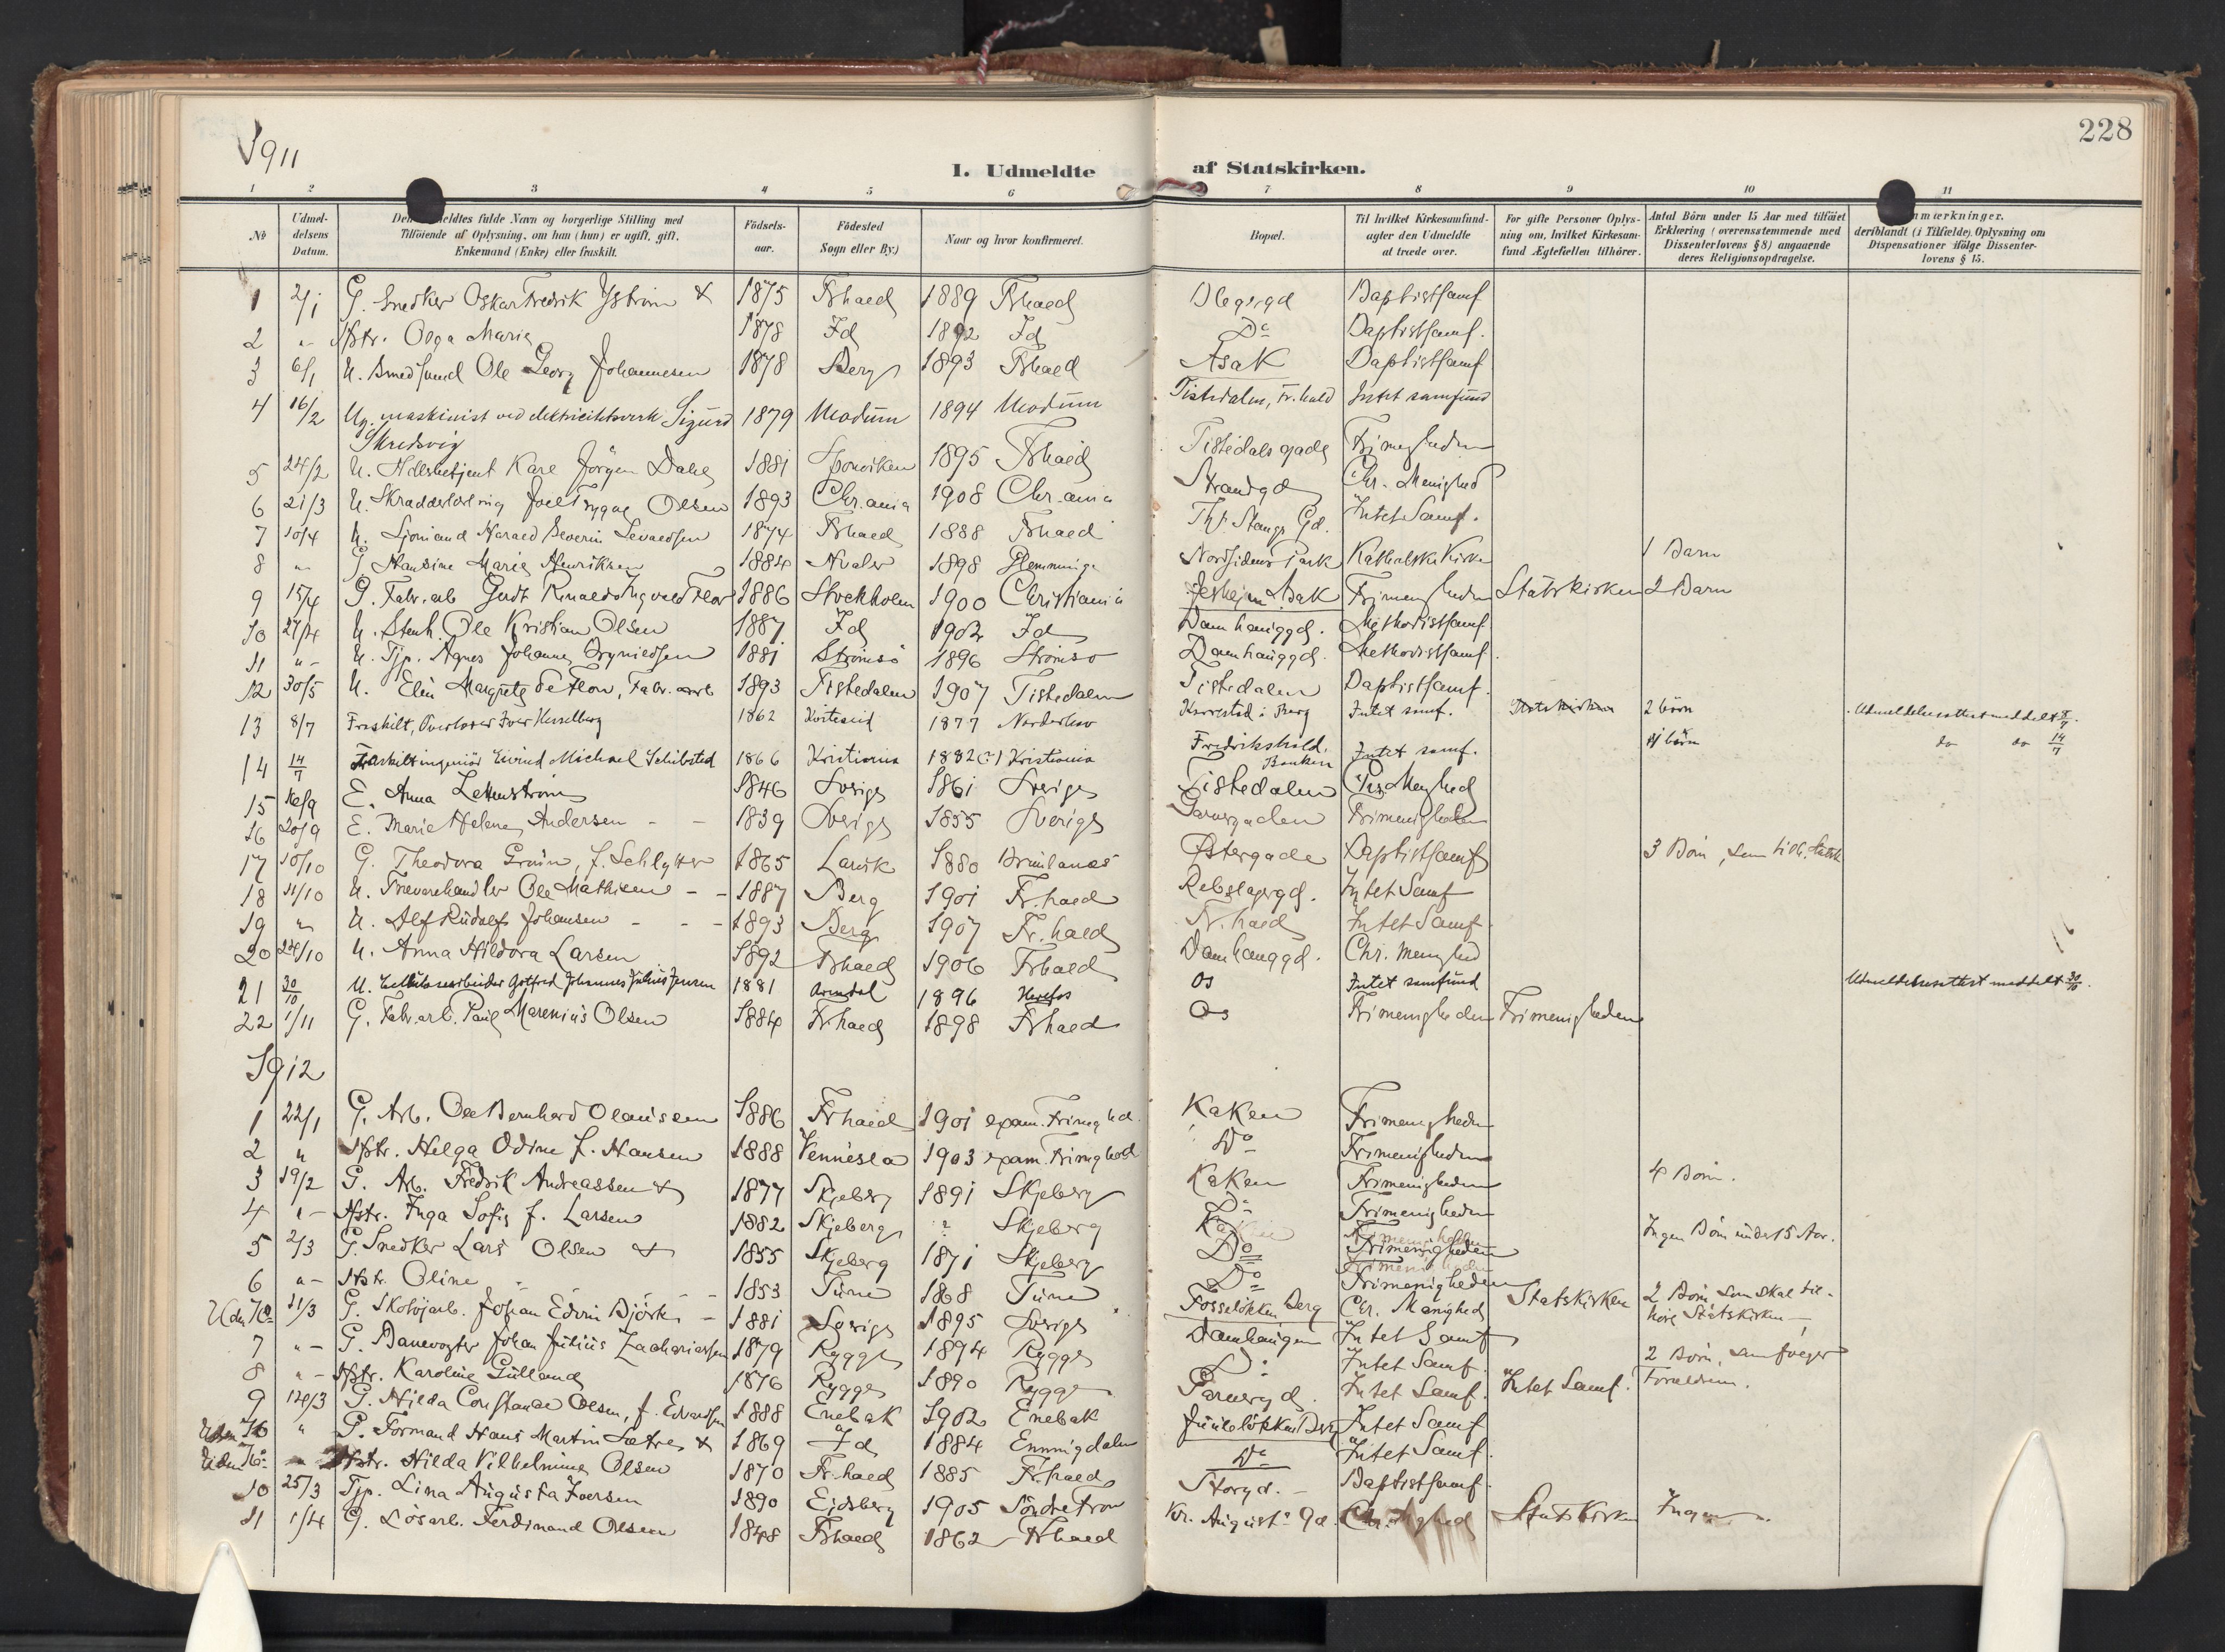 228
1911
I. Udmeldte af Statskirken.
1 2 3 4 5 6 7 8 9 10 11
No
Udmeldelsens Datum.
Den meldtes fulde Navn og borgerlige Stilling med Tilföiende af Oplysning, om han (hun) er ugift, gift, Enkemand (Enke) eller fraskilt.
Födselsaar.
Födested Sogn eller By.)
Naar og hvor konfirmeret.
Bopæl.
Til hvilket Kirkesamfund agter den Udmeldte at træde over.
For gifte Personer Oplysning om, hvilket Kirkesamfund Ægtefællen tilhörer.
Antal Börn under 15 Aar med tilföiet Erklæring (overensstemmende med Dissenterlovens § 8) angaaende deres Religionsopdragelse.
nmærkninger, deriblandt (i Tilfælde) Oplysning om Dispensationer ifölge Dissenterlovens § 15.
1 2/1 G. Snedker Oskar Fredrik & 1875 Frhald 1889 Frhald Baptistsamf
2 "- Hstr. Olga Marie 1878 Id 1892 Id Do Baptistsamf.
3 6/1 U. Ole Georg Johannesen 1878 Berg 1893 Frhald Asak Baptistsamf
4 16/2 Ug. maskinist ved elektricitetsverk Sigurd Skredsvig 1879 Modum 1894 Modum Tistedalen, Fr.hald Intet samfund
5 24/2 U. Karl Jörgen Dahl 1881 Sponviken 1895 Frhald Tistedalsgade Frimenigheden
6 21/3 U. Skrædderlærling Joel Trygve Olsen 1893 Chr.ania 1908 Chr.ania Strandgd Chr. Menighed
7 10/4 U. Sjömand Harald Severin 1874 Frhald 1888 Frhald Ths. Stangs Gd. Intet Samf.
8 "- G. Hansine Marie Henriksen 1884 Hvaler 1898 Glemminge Nordsidens Park Katholske Kirke 1 Barn
9 15/4 G. Fabr.arb 1886 Stockholm 1900 Christiania Asak Frimenigheden Statskirken 2 Barn
10 27/4 U. Stenh. Ole Kristian Olsen 1887 Id 1902 Id Damhauggd. Methodistsamf
11 "- U. Tjp. Agnes Johanne 1881 Strömsö 1896 Strömsö Damhauggd. Methodistsamf.
12 30/5 U. Elin Margrete de Flon, Fabr. arb 1893 Tistedalen 1907 Tistedalen Tistedalen Baptistsamf.
13 8/7 Fraskilt, Iver Hesselberg 1862 1877 i Berg Intet samf. Statskirken 2 börn Udmeldelsesattest meddelt 8/7.
14 14/7 Fraskilt ingeniör Eivind Michael Schibsted 1866 Kristiania 1882 (?) Kristiania Fredrikshald. Banken Intet samf. börn do do 14/7
15 E. Anna 1846 Sverige 1861 Sverige Tistedalen Chr. Menighed
16 20/9 E. Marie Helene Andersen - - 1839 Sverige 1855 Sverige Garvergaden Frimenigheden
17 10/10 G. Theodora Grün, f. Schlytter 1865 Larvik 1880 Östergade Baptistsamf 3 Börn, som tilh. Statsk
18 11/10 U. Trævarehandler Ole Mathisen - - 1887 Berg 1901 Fr.hald Rebslagergd. Intet Samf
19 " U. Alf Rudolf Johansen - - - 1893 Berg 1907 Fr.hald Fr.hald Intet Samf.
20 24/10 U. Anna Hildora Larsen 1892 Frhald 1906 Frhald Damhauggd. Chr. Menighed
21 30/10 U. Gotfred Johannes Julius Jensen 1881 Arendal 1896 Herefos Os Intet samfund Udmeldelsesattest meddelt 30/10.
22 1/11 G. Fabr.arb. Paul Marenius Olsen 1884 Fr.hald 1898 Frhald Os Frimenigheden Frimenigheden
1912
1 22/1 G. Arb. Ole Bernhard Olaussen 1886 Frhald 1901 exam. Frimeghed. Kaken Frimenigheden
2 " Hstr. Helga Odine f. Hansen 1888 Vennesla 1903 exam. Frimeghed Do Frimenigheden
3 19/2 G. Arb. Fredrik Andreassen & 1877 Skjeberg 1891 Skjeberg Kaken Frimenigheden 4 Börn.
4 "- Hstr. Inga Sofie f. Larsen 1882 Skjeberg ? Skjeberg Do Frimenigheden
5 2/3 G. Snedker Lars Olsen & 1855 Skjeberg 1871 Skjeberg Do Frimenigheden Ingen Börn under 15 Aar.
6 "- Hstr. Oline - - - 1853 Tune 1868 Tune Do Frimenigheden
Uden No 11/3 G. Skotöjarb. Johan Edvin Björk - 1881 Sverige 1895 Sverige Fosselökken, Berg Chr. Menighed Statskirken 2 Börn som skal tilhöre Statskirken -
7 "- G. Banevogter Johan Julius Zachariassen 1879 Rygge 1894 Rygge Damhaugen Intet Samf
8 "- Hstr. Karoline Gulland 1876 Rygge 1890 Rygge Do Intet Samf. 2 Börn, som fölger Forældrene.
9 12/3 G. Hilda Constance Olsen, f. Edvardsen 1888 Enebak 1902 Enebak Garvergd. Intet Samf. Intet Samf.
Uden No " G. Formand Hans Martin Sætre & 1869 Id 1884 Enningdalen Berg Intet Samf
Uden No "- Hstr. Hilda Vilhelmine Olsen 1870 Fr.hald 1885 Fr.hald Do Intet Samf.
10 25/3 Tjp. Lina Augusta Iversen 1890 Eidsberg 1905 Söndre Storgd. - Baptistsamf.
11 1/4 G. Lösarb. Ferdinand Olsen 1848 Frhald 1862 Frhald Kr. Augusts Gd. Chr. Statskirken Ingen